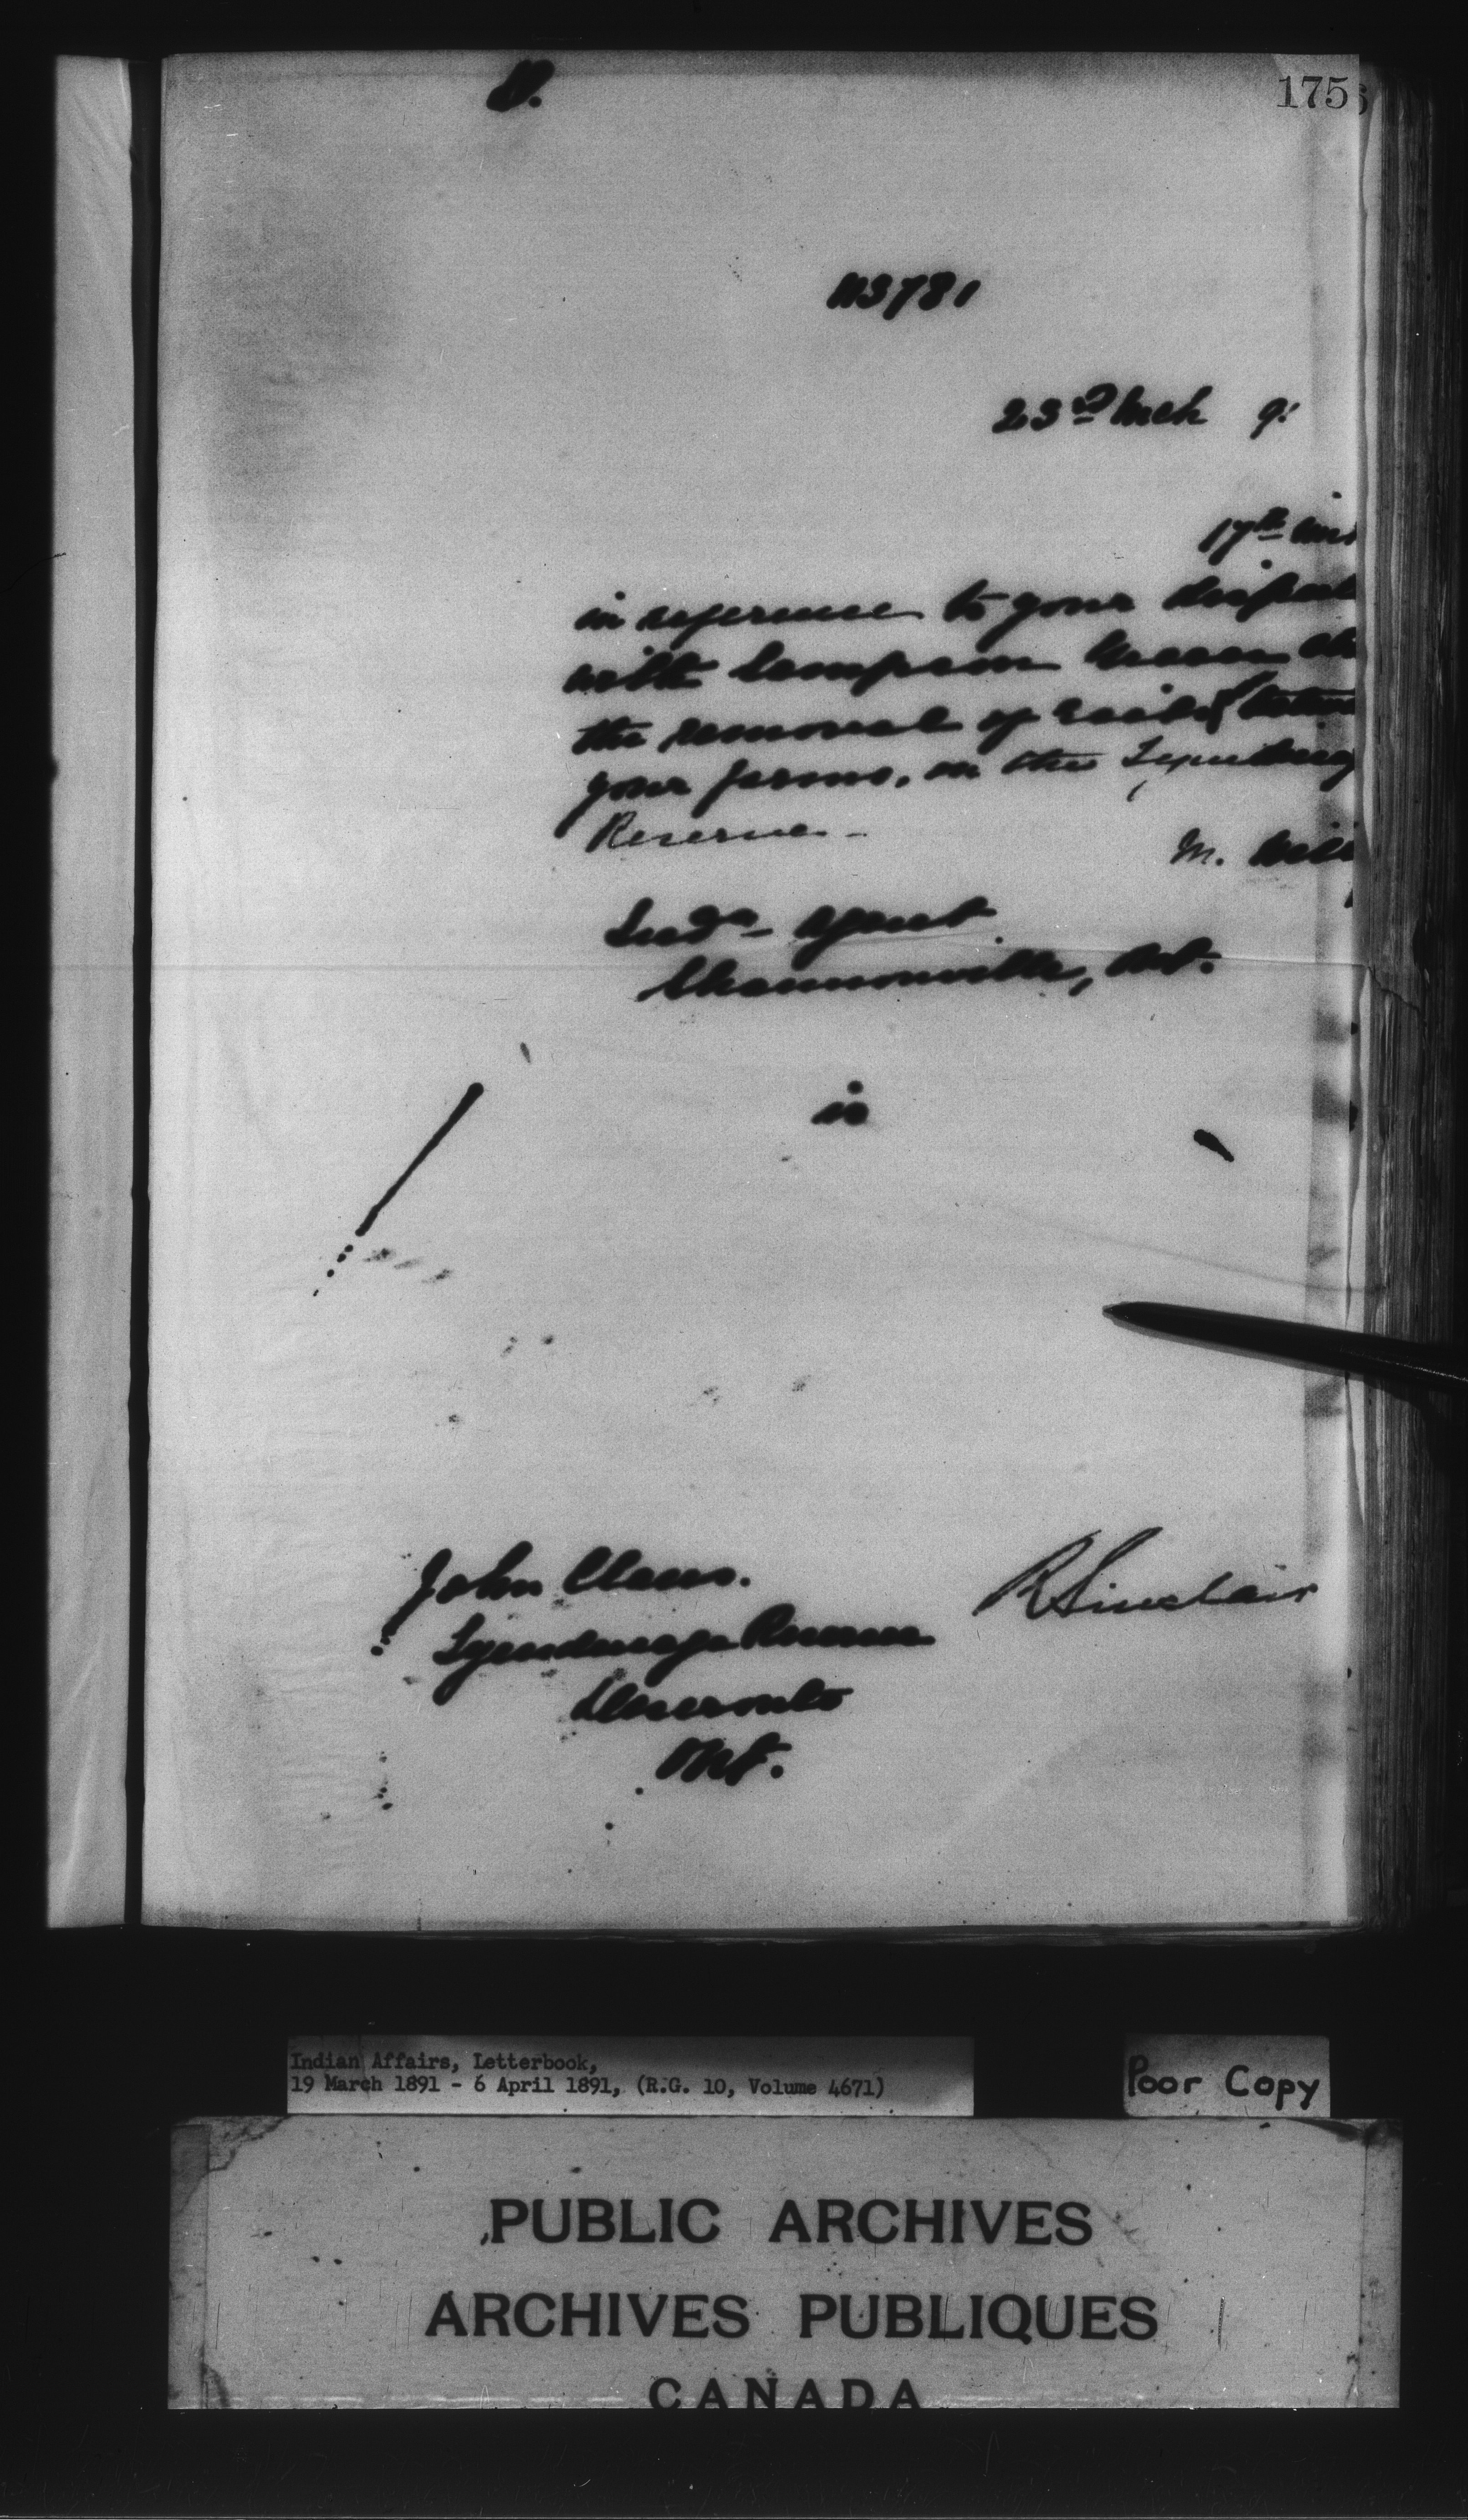 175
D.
113781
23rd Mch 91
17th inst
in reference to your
with Sampson Green
the removal of rails
your farms, on the Tyendinaga
Reserve -
M.
Ind'n Agent
Shannonville, Ont.
is
John Claus.
Tyendinaga Reserve
Deseronto
Ont.
R Sinclair
Indian Affairs, Letterbook,
19 March 1891 - 6 April 1891, (R.G. 10, Volume 4671)
Poor Copy
PUBLIC ARCHIVES
ARCHIVES PUBLIQUES
CANADA